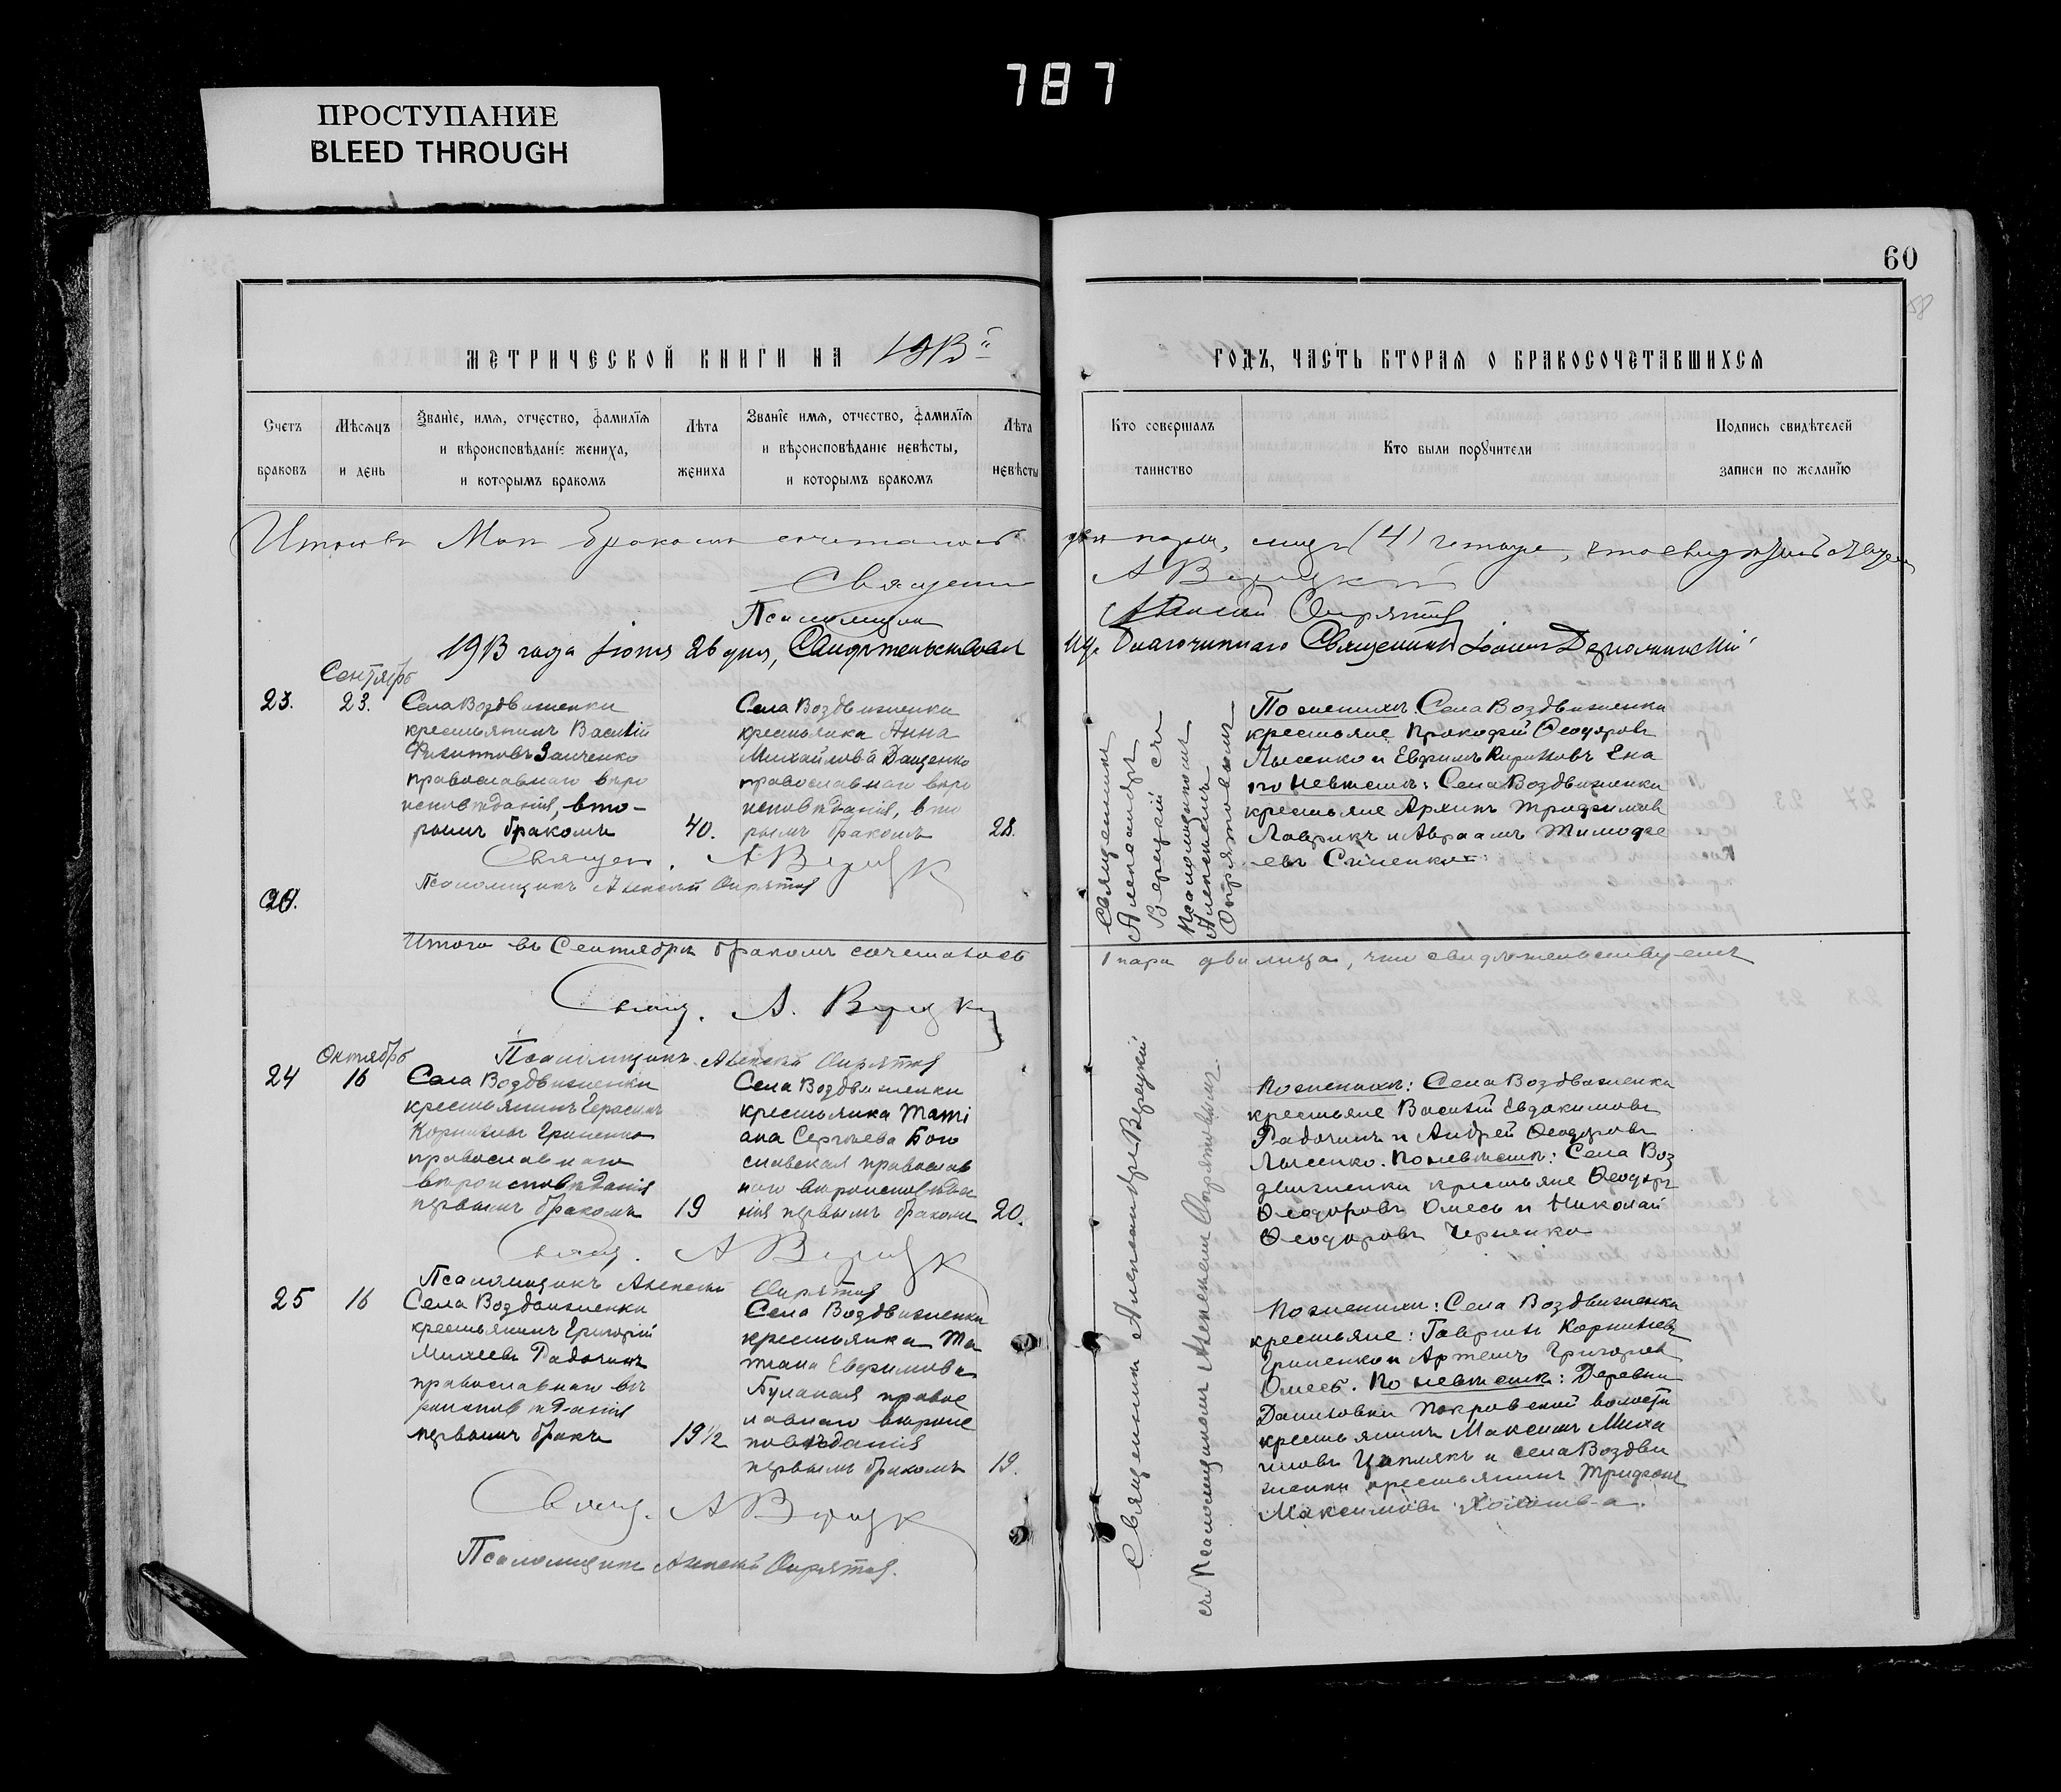 787
ПРОСТУПАНИЕ
BLEED THROUGH
60
58
МЕТРИЧЕСКОЙ КНИГИ НА 1913й
ГОДЪ, ЧАСТЬ ВТОРАЯ О БРАКОСОЧЕТАВШИХСЯ
Счетъ браковъ
Мѣсяцъ и день
Званіе, имя, отчество, фамилія
и вѣроисповѣданіе жениха,
и которымъ бракомъ
Лѣта жениха
Званіе имя, отчество, фамилія
и вѣроисповѣданіе невѣсты,
и которымъ бракомъ
Лѣта невѣсты
Кто совершалъ таинство
Кто были поручители
Подпись свидѣтелей
записи по желанію
Итого въ Маѣ бракомъ сочеталось
двѣ пары, лицъ (4) четыре, что свидѣтельствуемъ
Священ
А Верецкій
Псаломщикъ
Алексій Опрятовъ
1913 года Іюня 26 дня, Свидѣтельствовалъ
Благочиннаго Священникъ Іоаннъ
Сентябрь
23. 23.
Села Воздвиженки
крестьянинъ Василій
Филипповъ Заиченко
православнаго вѣро
исповѣданія, вто-
рымъ бракомъ
40.
Села Воздвиженки
крестьянка Анна
Михайлова Даценко
православнаго вѣро
исповѣданія, вто
рымъ бракомъ
28.
Священникъ
Александръ
Верецкій съ
Псаломщикомъ
Алексѣемъ
Опрятовымъ
По женихѣ: Села Воздвиженки
крестьяне Прокофій Ѳеодоровъ
Лысенко и Евфимъ Кириловъ Ена
по невѣстѣ: Села Воздвиженки
крестьяне Архипъ Трифиловъ
Лаврикъ и Авраамъ Тимофе
евъ Синенко
Священ. А Верецк
Псаломщикъ Алексій Опрятов
24.
Итого въ Сентябрѣ бракомъ сочеталось
1 пара два лица, что свидѣтельствуемъ
Свящ. А. Верецкі
Псаломщикъ Алексій Опрятов
Октябрь
24 16
Села Воздвиженки
крестьянинъ Герасимъ
Корниліевъ Гриненко
православнаго
вѣроисповѣданія
первымъ бракомъ
19
Села Воздвиженки
крестьянка Тати
ана Сергѣева Бого
славская православ
наго вѣроисповѣда
нія первымъ бракомъ
20.
Священникъ Александръ Верецкій
съ Псаломщикомъ Алексѣемъ Опрятовымъ.
По женихѣ: Села Воздвиженки
крестьяне Василій Евдокимовъ
Радочинъ и Андрей Ѳеодоровъ
Лысенко. По невѣстѣ: Села Воз
движенки крестьяне Ѳеодоръ
Ѳеодоровъ Омесь и Николай
Ѳеодоровъ Черненко
Свящ. А Верецк
Псаломщикъ Алексѣй Опрятов
25 16
Села Воздвиженки
крестьянинъ Григорій
Михеевъ Радочинъ
православнаго вѣ
роисповѣданія
первымъ бракъ
19 1/2
Села Воздвиженки
крестьянка Та
тіана Евфимова
Булакая правос
лавнаго вѣроис
повѣданія
первымъ бракомъ
19.
По женихѣ: Села Воздвиженки
крестьяне: Гавріилъ Корниліев
Гриненко и Артемъ Григоров
Омесь. По невѣстѣ: Деревни
Даниловки Покровской волости
крестьянинъ Максимъ Миха
иловъ Цаплякъ и села Воздви
женки крестьянинъ Трифонъ
Максимовъ
Свящ. А Верецк
Псаломщикъ Алексѣй Опрятов.